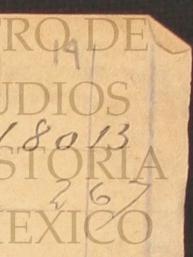 RO DE
19
UDIOS
18013
STORIA
267
MEXICO